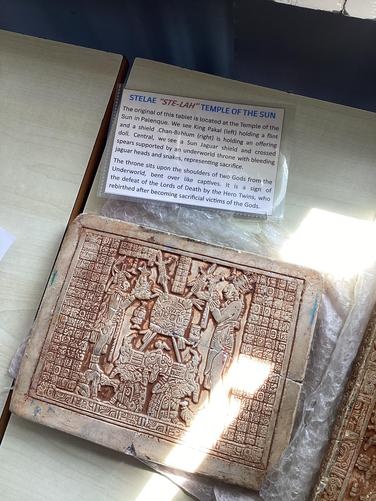 STELAE "STE-LAH" TEMPLE OF THE SUN
The original of this tablet is located at the Temple of the
Sun in Palenque. We see King Pakal (left) holding a flint
and a shield .Chan-Bahlum (right) is holding an offering
doll. Central, we see a Sun Jaguar shield and crossed
spears supported by an underworld throne with bleeding
jaguar heads and snakes, representing sacrifice.
The throne sits upon the shoulders of two Gods from the
Underworld, bent over like captives. It is a sign of
the defeat of the Lords of Death by the Hero Twins, who
rebirthed after becoming sacrificial victims of the Gods.